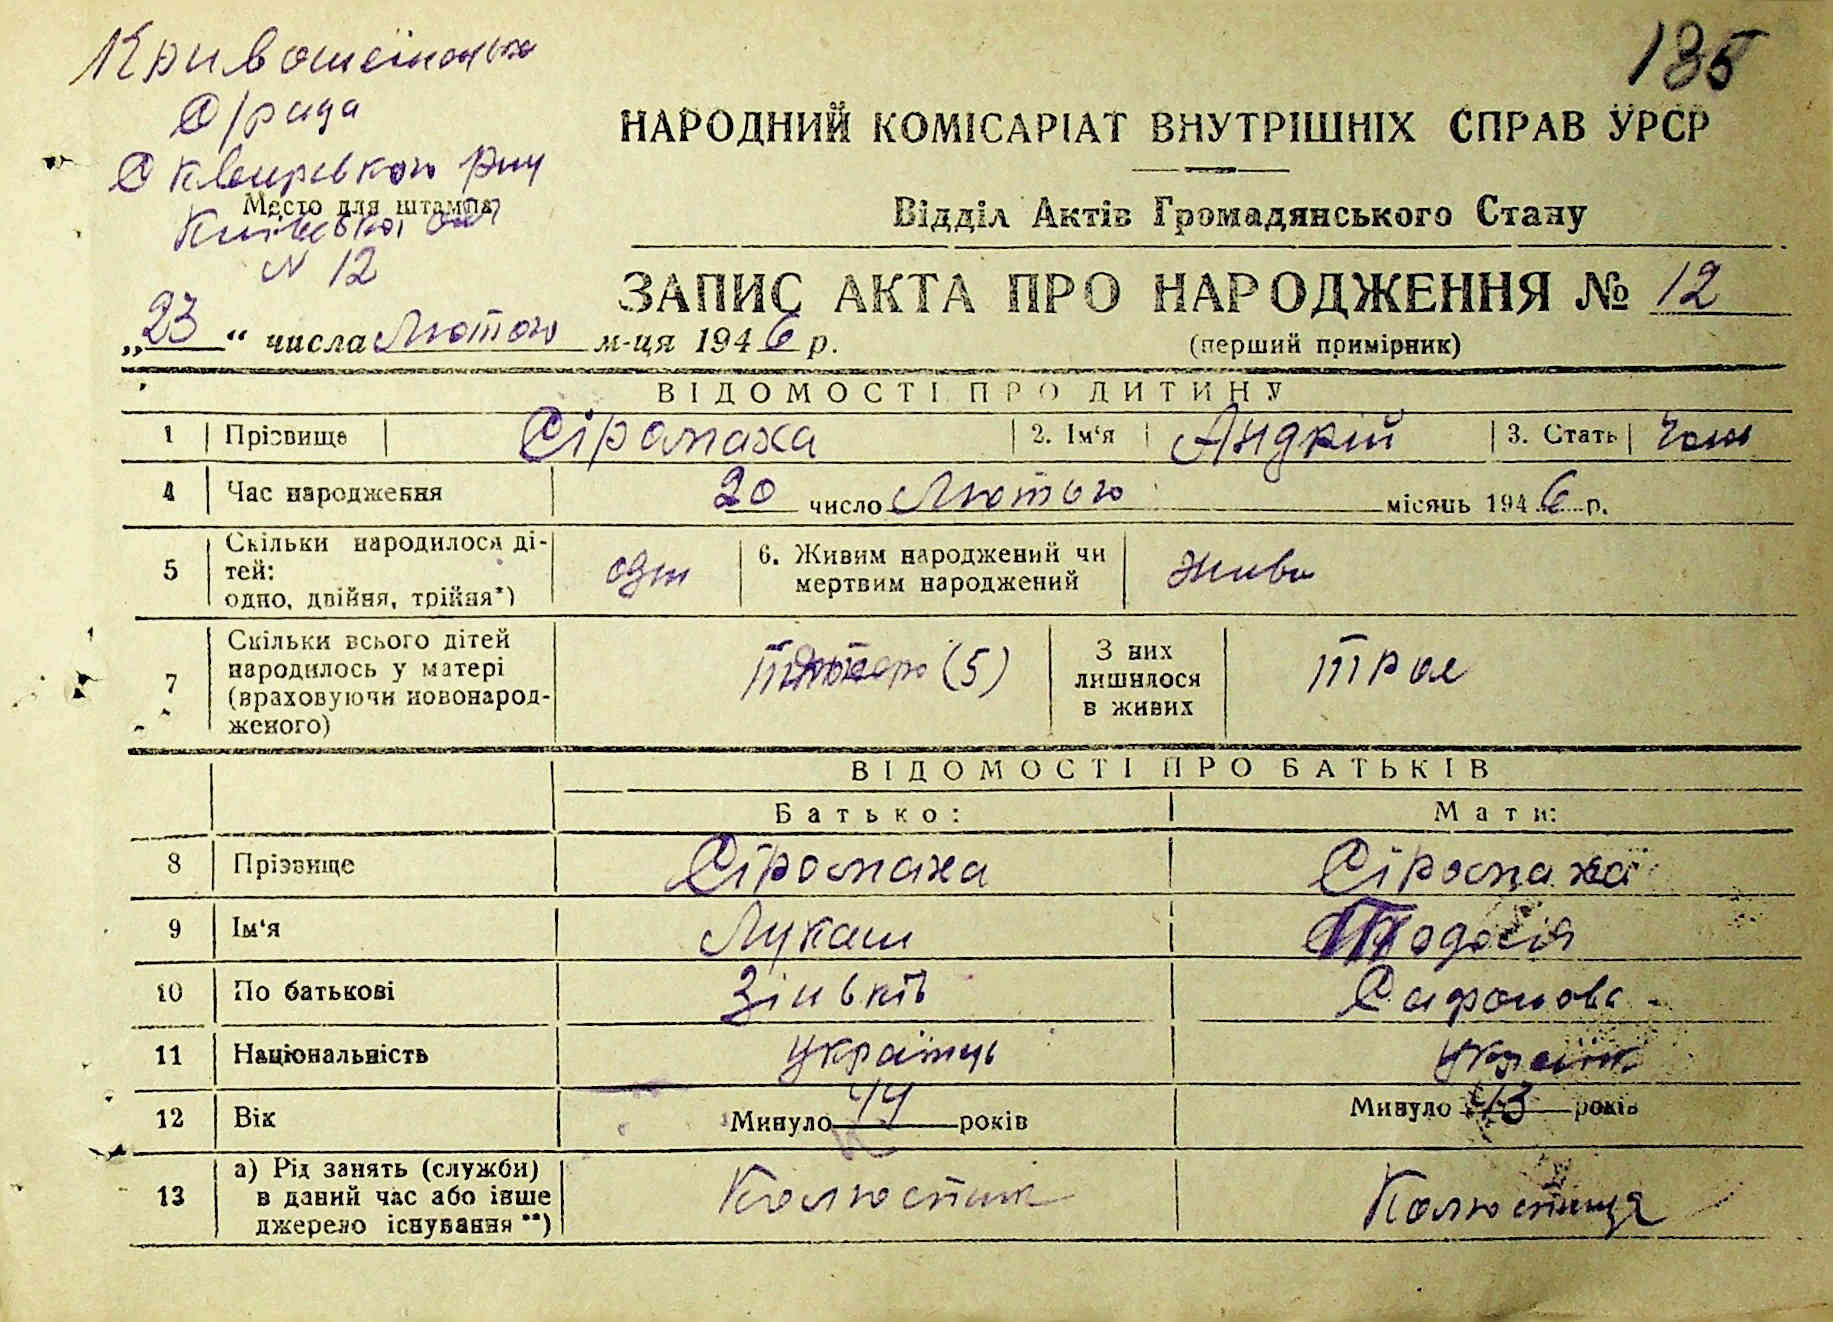 Кривошеїнська
С/рада
Сквирського р-ну
Место для штампа
Київської обл
N 12
135
НАРОДНИЙ КОМІСАРІАТ ВНУТРІШНІХ СПРАВ УРСР
Відділ Актів Громадянського Стану
ЗАПИС АКТА ПРО НАРОДЖЕННЯ № 12
„23“ числа Лютого м-ця 1946 р.
(перший примірник)
ВІДОМОСТІ ПРО ДИТИНУ
1 Прізвище Сіромаха 2. Ім‘я Андрій 3. Стать чол
4 Час народження 20 число Лютого місяць 1946 р.
5 Скільки народилося ді-
тей:
одно, двійня, трійня*) одн
6. Живим народжений чи
мертвим народжений живе
7 Скільки всього дітей
народилось у матері
(враховуючи новонарод-
женого) (5)
З них
лишилося
в живих троє
ВІДОМОСТІ ПРО БАТЬКІВ
Батько: Мати:
8 Прізвище Сіромаха Сіромаха
9 Ім‘я Лукаш Тодосія
10 По батькові Зіньків Сафонова
11 Національність українць україн
12 Вік Минуло 44 років Минуло 43 років
13 а) Рід занять (служби)
в даний час або інше
джерело існування**) Колгоспник Колгоспниця